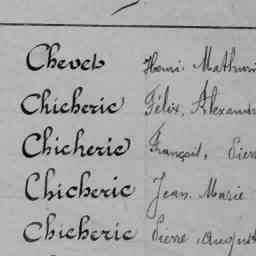 Chevet Henri. Mathurin
Chicherie Félix, Alexandre
Chicherie François, Pierre
Chicherie Jean. Marie
Chicherie Pierre, August